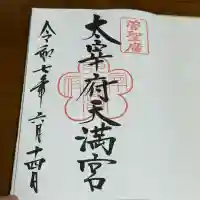 菅聖廟
太宰府天満宮
令和七年六月十四日